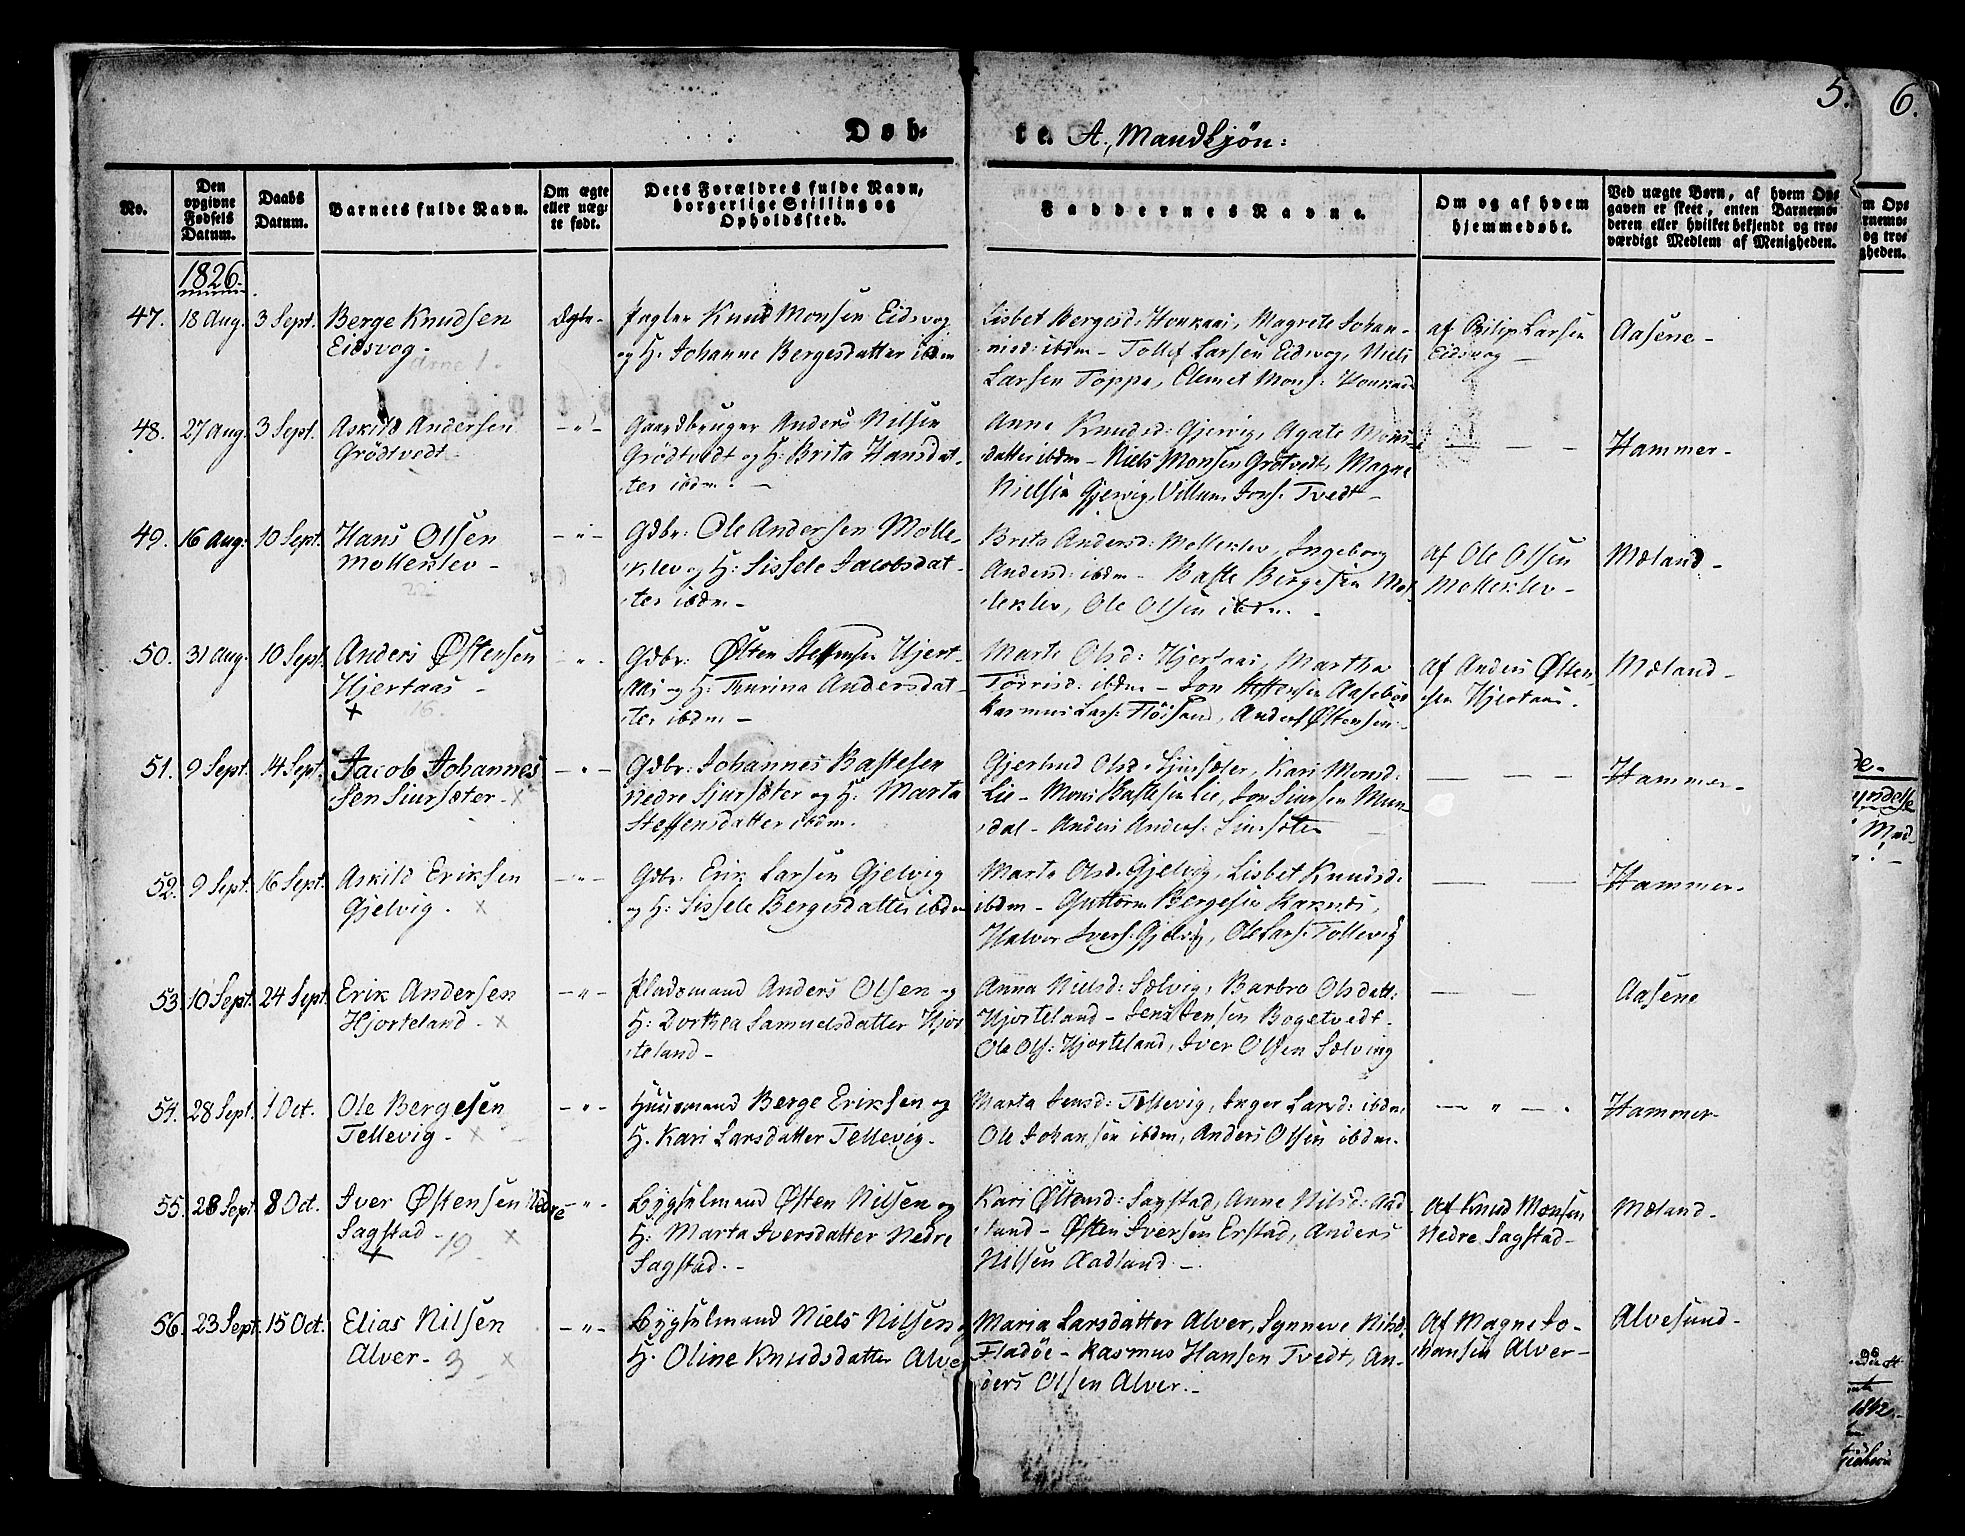 5. 6.
Døb- te. A, Mandkjøn:
No.
Den opgivne Fødsels Datum.
Daabs Datum.
Barnets fulde Navn.
Om ægte eller uægte født.
Dets Forældres fulde Navn, borgerlige Stilling og Opholdssted.
Faddernes Navne.
Om og af hvem hjemmedøbt.
Ved uægte Børn, af hvem Opgaven er skeet, enten Barnemoderen eller hvilket bekjendt og troværdigt Medlem af Menigheden.
1826.
47. 18 Aug. 3 Sept. Berge Knudsen
Eidsvog.
Ægte- Knud Monsen Eidsvog
og H: Johanne Bergesdatter ibdm
Lisbet Bergesd: Honkaas, Magrete Johan-
nesd: ibdm - Tollef Larsen Eidsvog, Niels
Larsen Toppe, Clemet Mons:
af Philip Larsen
Eidsvog -
Aasene -
48. 27 Aug. 3 Sept. Askild Andersen
Grödtvedt -
- " - Gaardbruger Anders Nilsen
Grödtvedt og H: Brita Hansdat-
ter ibdm. -
Anne Knudsd: Gjervig, Agate Mons-
datter ibdm - Niels Monsen Grötvedt, Magne
Nielsen Gjervig, Villum Jons: Tvedt -
- - -
Hammer -
49. 16 Aug. 10 Sept. Hans Olsen
Molleklev -
22
- " - Gdbr: Ole Andersen Molle-
klev og H: Sissele Jacobsdat-
ter ibdm -
Brita Andersd: Molleklev, Ingeborg
Andersd: ibdm - Baste Bergesen Mol-
leklev, Ole Olsen ibdm -
af Ole Olsen
Molleklev -
Mæland -
50. 31 Aug. 10 Sept. Anders Østensen
Hjertaas -
+ 16.
- " - Gdbr: Østen Steffensen Hjert-
aas og H: Thurina Andersdat-
ter ibdm -
Marte Olsd: Hjertaas, Martha
Törrisd: ibdm - Jon Steffensen Aasebøe
Rasmus Lars: Flöisand, Anders Østensen -
af Anders Østen-
sen Hjertaas.
Mæland -
51. 9 Sept. 14 Sept. Jacob Johannes
sen Siursæter - x
- " - Gdbr: Johannes Bastesen
Nedre Sjursæter og H: Marta
Steffensdatter ibdm.
Gjertrud Olsd: Sjursæter, Kari Monsd:
Lie - Mons Bastesen Lie, Jon Siursen Mun-
dal - Anders Anders: Siursæter
- - -
Hammer -
52. 9 Sept. 16 Sept. Askild Eriksen
Gjelvig - x
- " - Gdbr: Erik Larsen Gjelvig
og H: Sissele Bergesdatter ibdm
Marta Olsd: Gjelvig, Lisbet Knudsd:
ibdm - Guttorm Bergesen
Halvor Ivers: Gjelvig, Ole Lars: Tellevig
- -
Hammer -
53. 10 Sept. 24 Sept. Erik Andersen
Hjorteland - x
- " - Pladsmand Anders Olsen og
H: Dorthea Samuelsdatter Hjor
teland -
Anna Nielsd: Sælvig, Barbro Olsdatt:
Hjorteland - Jens Jensen Bogetvedt.
Ole Ols: Hjorteland, Iver Olsen Sælving
- -
Aasene
54. 28 Sept. 1 Oct. Ole Bergesen
Tellevig - x
- " - Huusmand Berge Eriksen og
H. Kari Larsdatter Tellevig.
Marta Jensd: Tellevig, Inger Larsd: ibdm
Ole Johansen ibdm, Anders Olsen ibdm.
- " - .
Hammer -
55. 28 Sept. 8 Oct. Iver Østensen Nedre
Sagstad - 19 x
+
- " - Bygselmand Østen Nilsen og
H: Marta Iversdatter Nedre
Sagstad. -
Kari Østensd: Sagstad, Anne Nilsd: Aad
land - Østen Iversen Erstad, Anders
Nilsen Aadland -
Af Knud Monsen
Nedre Sagstad -
Mæland -
56. 23 Sept. 15 Oct. Elias Nilsen
Alver - 3 x
- " - Bygselmand Niels Nilsen og
H. Oline Knudsdatter Alver
Maria Larsdatter Alver, Synneve Nilsd.
Fladöe - Rasmus Hansen Tvedt, An-
ders Olsen Alver. -
Af Magne Jo-
hansen Alver -
Alvesund -